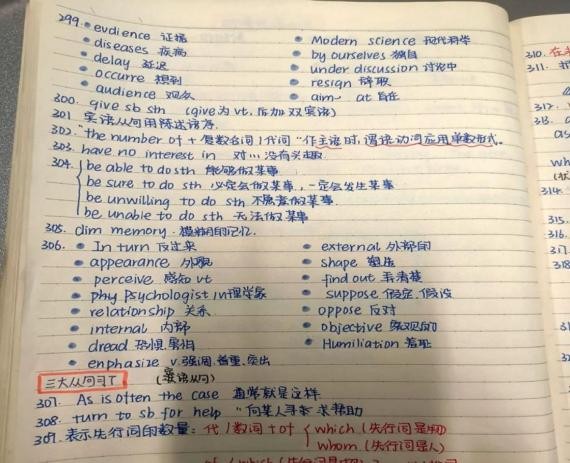 299. evdience 证据
diseases 疾病
delay 延迟
occurre 想到
audience 观众
Modern science 现代科学
by ourselves 独自
under discussion 讨论中
resign 辞职
aim at 旨在
300. give sb sth (give为vt, 后加双宾语)
301 宾语从句用陈述语序.
302. "the number of + 复数名词/代词"作主语时,谓语动词应用单数形式。
303. have no interest in 对…没有兴趣
304. be able to do sth 能够做某事
be sure to do sth 必定会做某事,一定会发生某事
be unwilling to do sth 不愿意做某事
be unable to do sth 无法做某事
305. dim memory. 模糊的记忆.
306. In turn 反过来
appearance 外貌
perceive 感知 vt
phy Psychologist 心理学家
relationship 关系
internal 内部
dread 恐惧.害怕
enphasize v.强调.着重.突出
external 外部的
shape 塑造
find out 弄清楚
suppose 假定.假设
oppose 反对
objective 客观的
Humiliation 羞耻
三大从句了 (宾语从句)
307. As is often the case 通常就是这样
308. turn to sb for help "向某人寻求帮助
309. 表示先行词的数量: 代/数词+of which (先行词是物)
whom (先行词是人)
310.
311.
312.
313.
314.
315.
316.
317
318